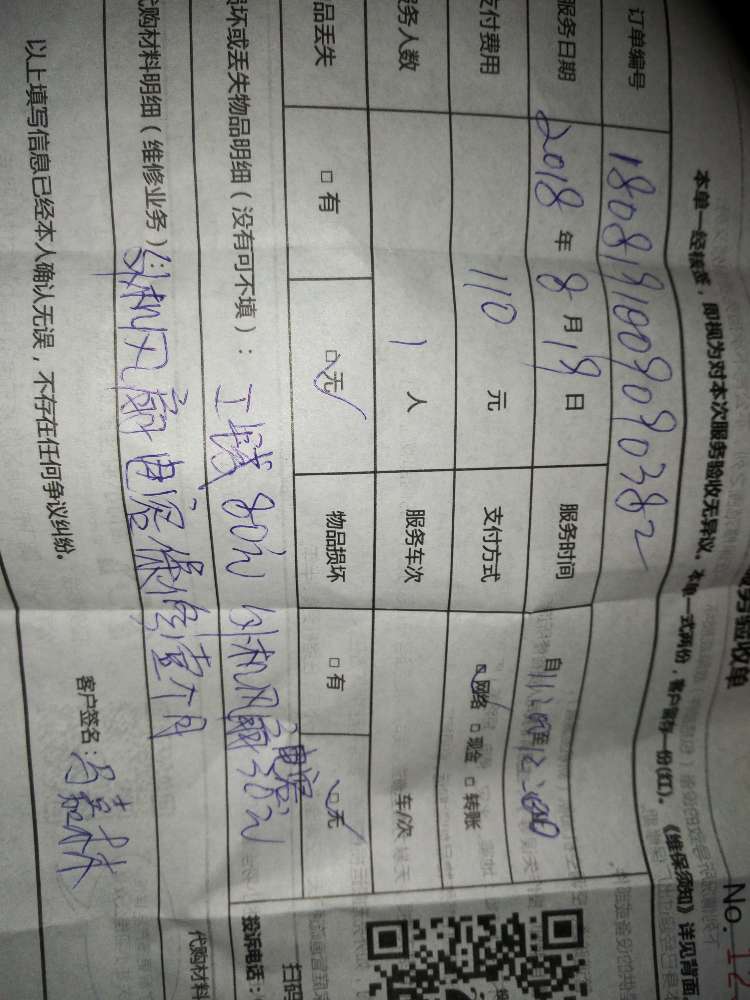 务验收单
No. 12
本单一经核签，即视为对本次服务验收无异议。本单一式两份，客户留存一份(红)。《维保须知》详见背面
订单编号 180819100909090382
服务日期 2018 年 8 月 19 日 服务时间 自
支付费用 110 元 支付方式 □网络 □现金 □转账
服务人数 1 人 服务车次 车/次
品丢失 □有 □无 物品损坏 □有 □无
损坏或丢失物品明细（没有可不填）： 工钱80元 外机风扇电容30元
代购材料明细（维修业务）： 外机风扇电容保修壹个月
以上填写信息已经本人确认无误，不存在任何争议纠纷。
客户签名：
扫码
投诉电话：
代购材料